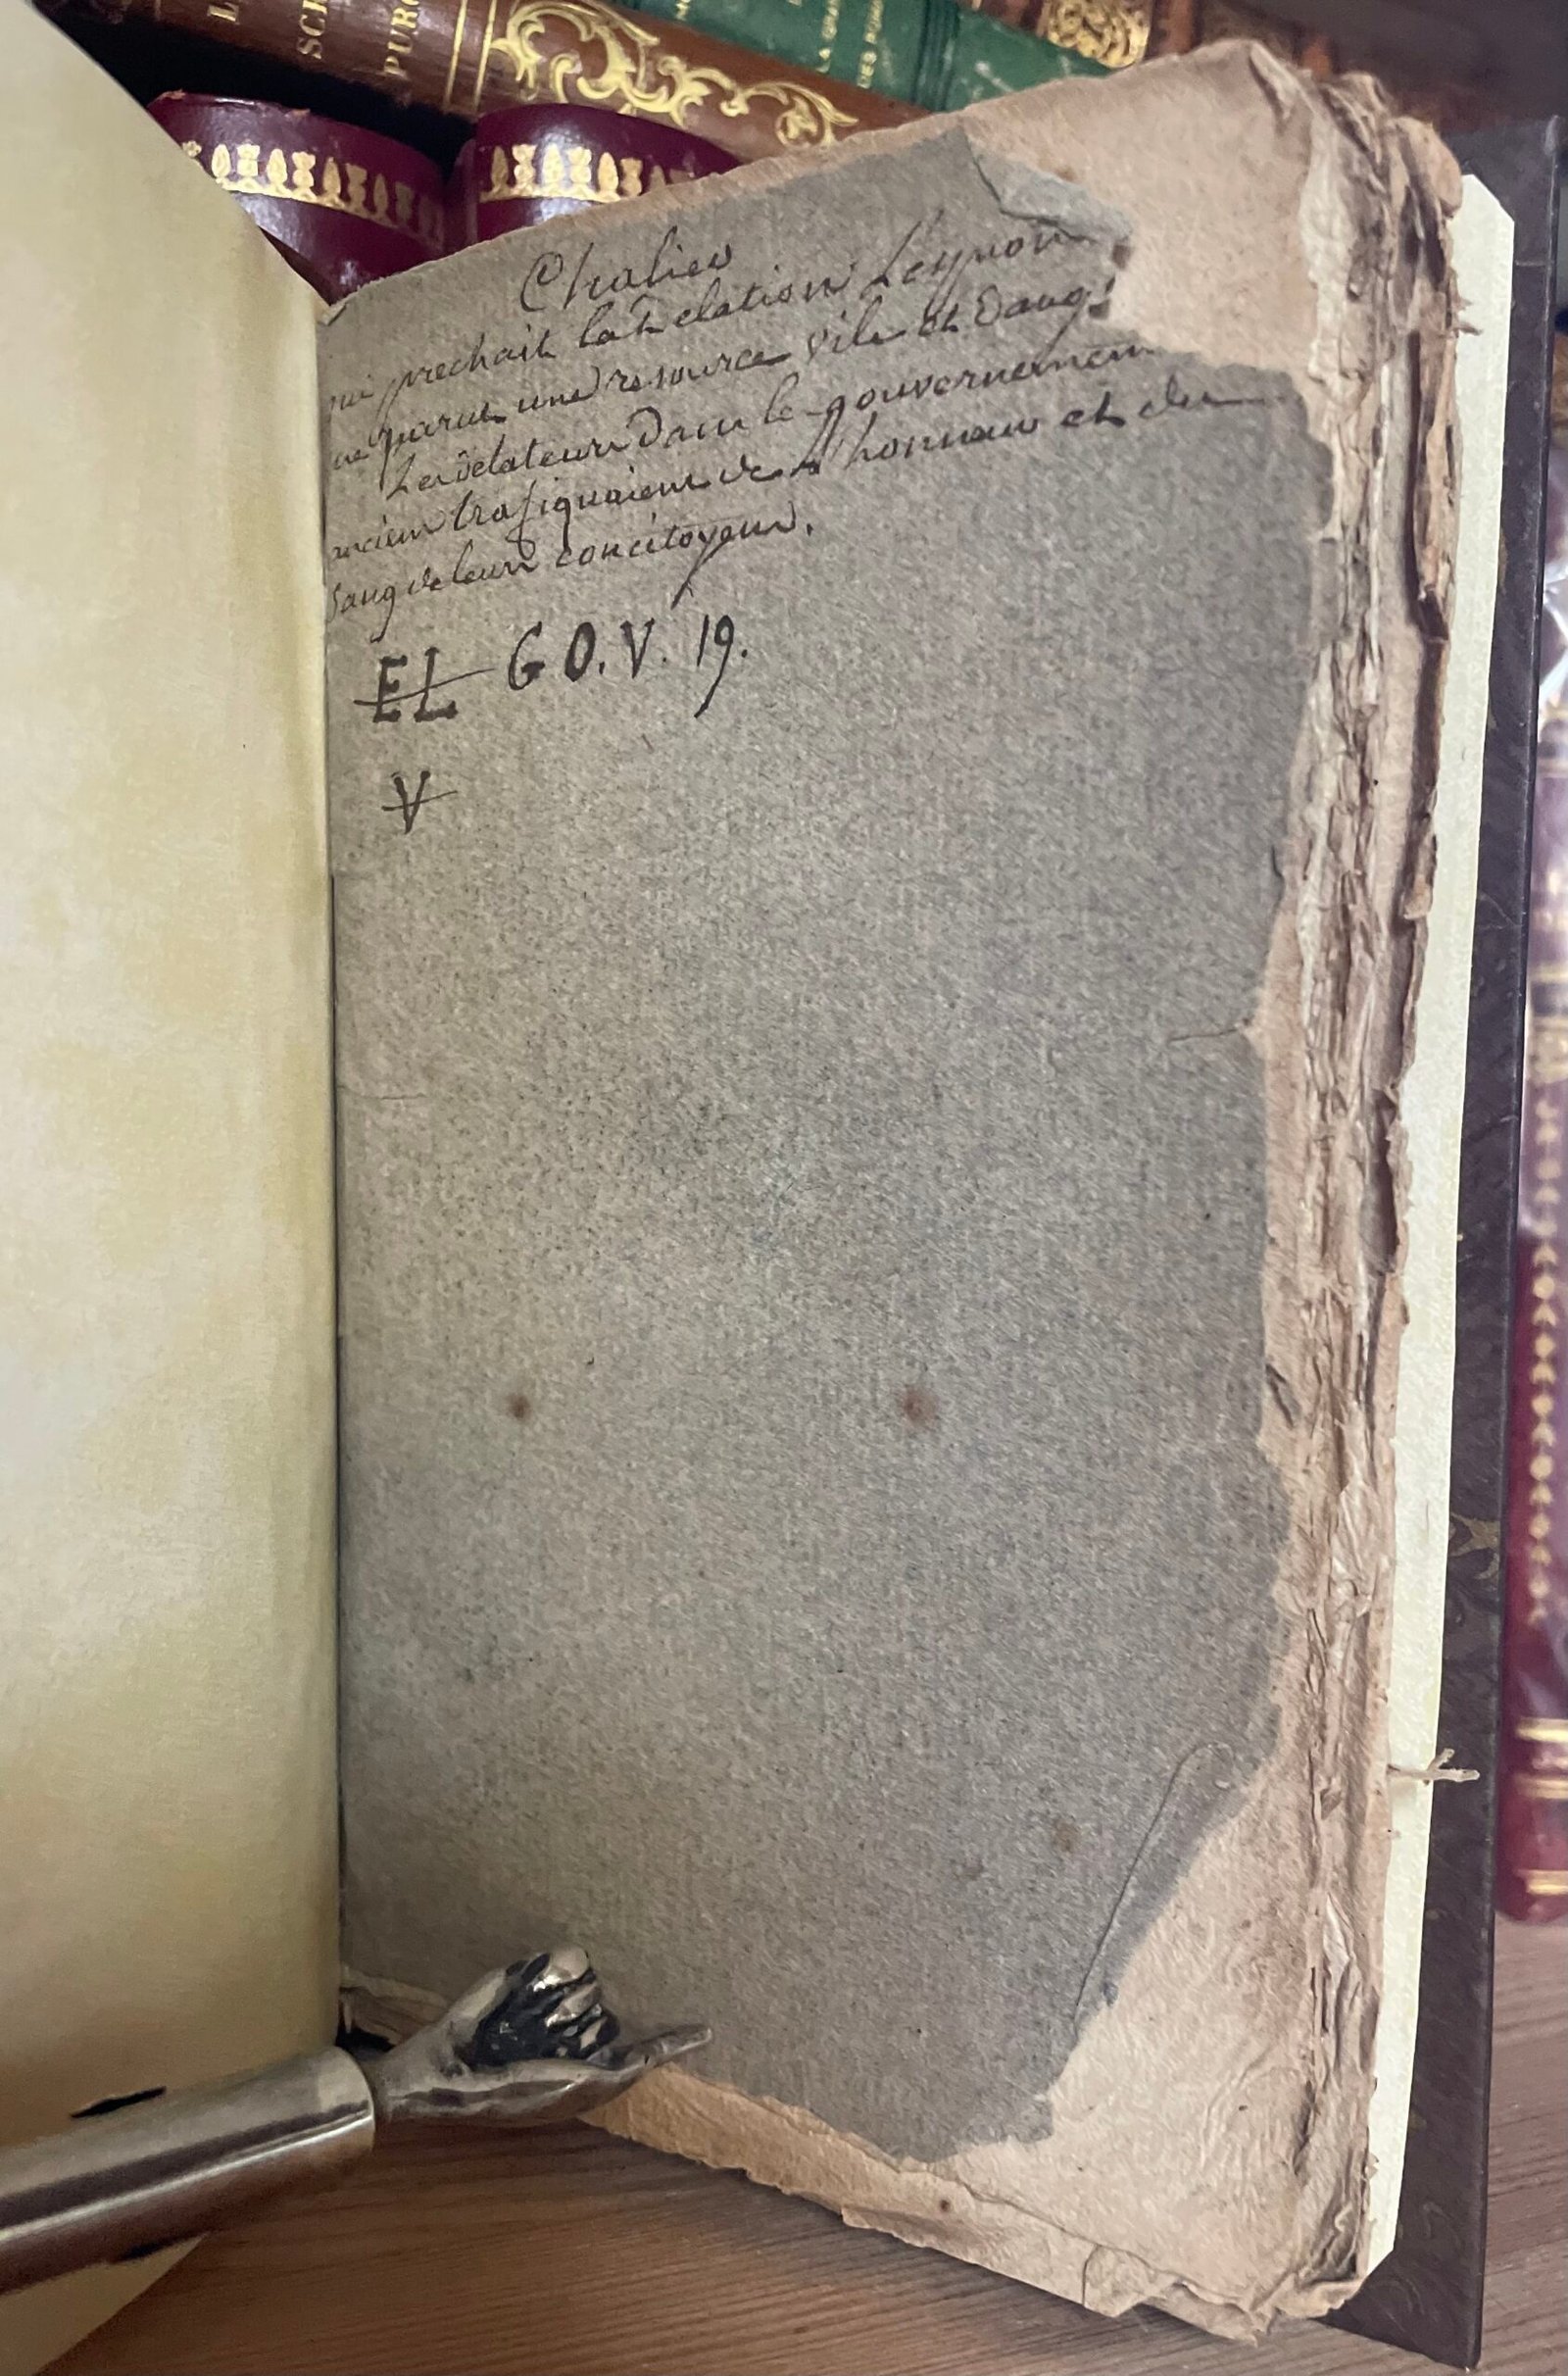 L
SC
PUR
LA GRA
DES POUR
Chalier
qui prechait la delation Leymon
ne parut une resource vile et dang
Les delateurs dans le gouvernement
ancien trafiquaient de l'honneur et du
sang de leurs concitoyens.
EL GO. V. 19.
V